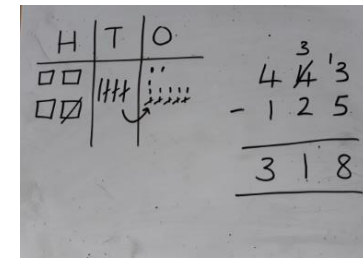 H T O
3
4 4 13
- 1 2 5
3 1 8